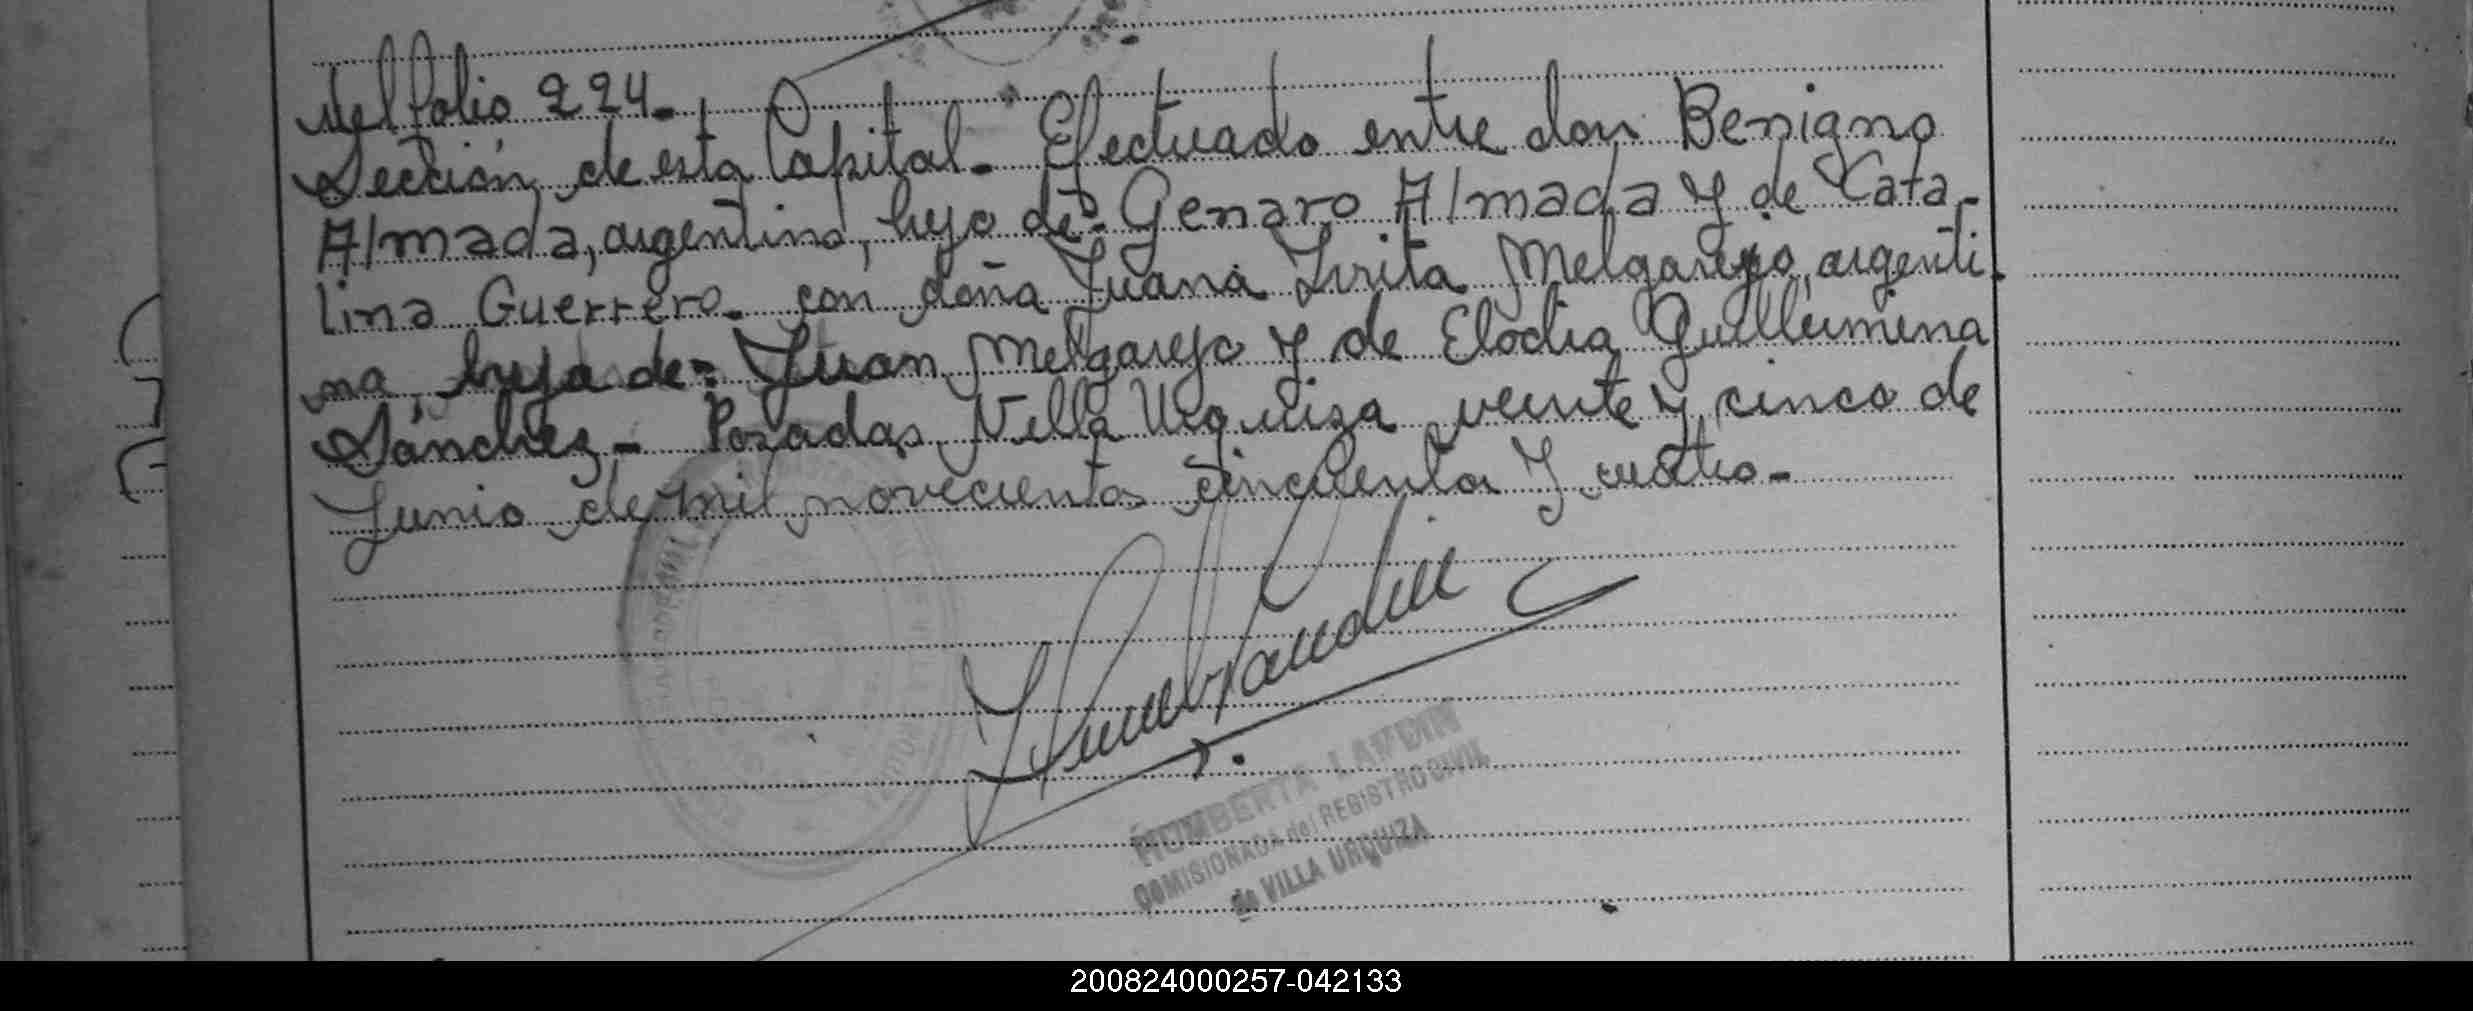 del folio 224.-
Sección de esta Capital.- Efectuado entre don Benigno
Almada, argentino, hijo de: Genaro Almada y de Cata-
lina Guerrero.- con doña Juana Zirita Melgarejo, argenti-
na, hija de: Juan Melgarejo y de Elodia Guillermina
Sánchez.- Posadas, Villa Urquiza veinte y cinco de
Junio de mil novecientos cincuenta y cuatro.-
HUMBERTA LANDIN
COMISIONADA del REGISTRO CIVIL
de VILLA URQUIZA
200824000257-042133